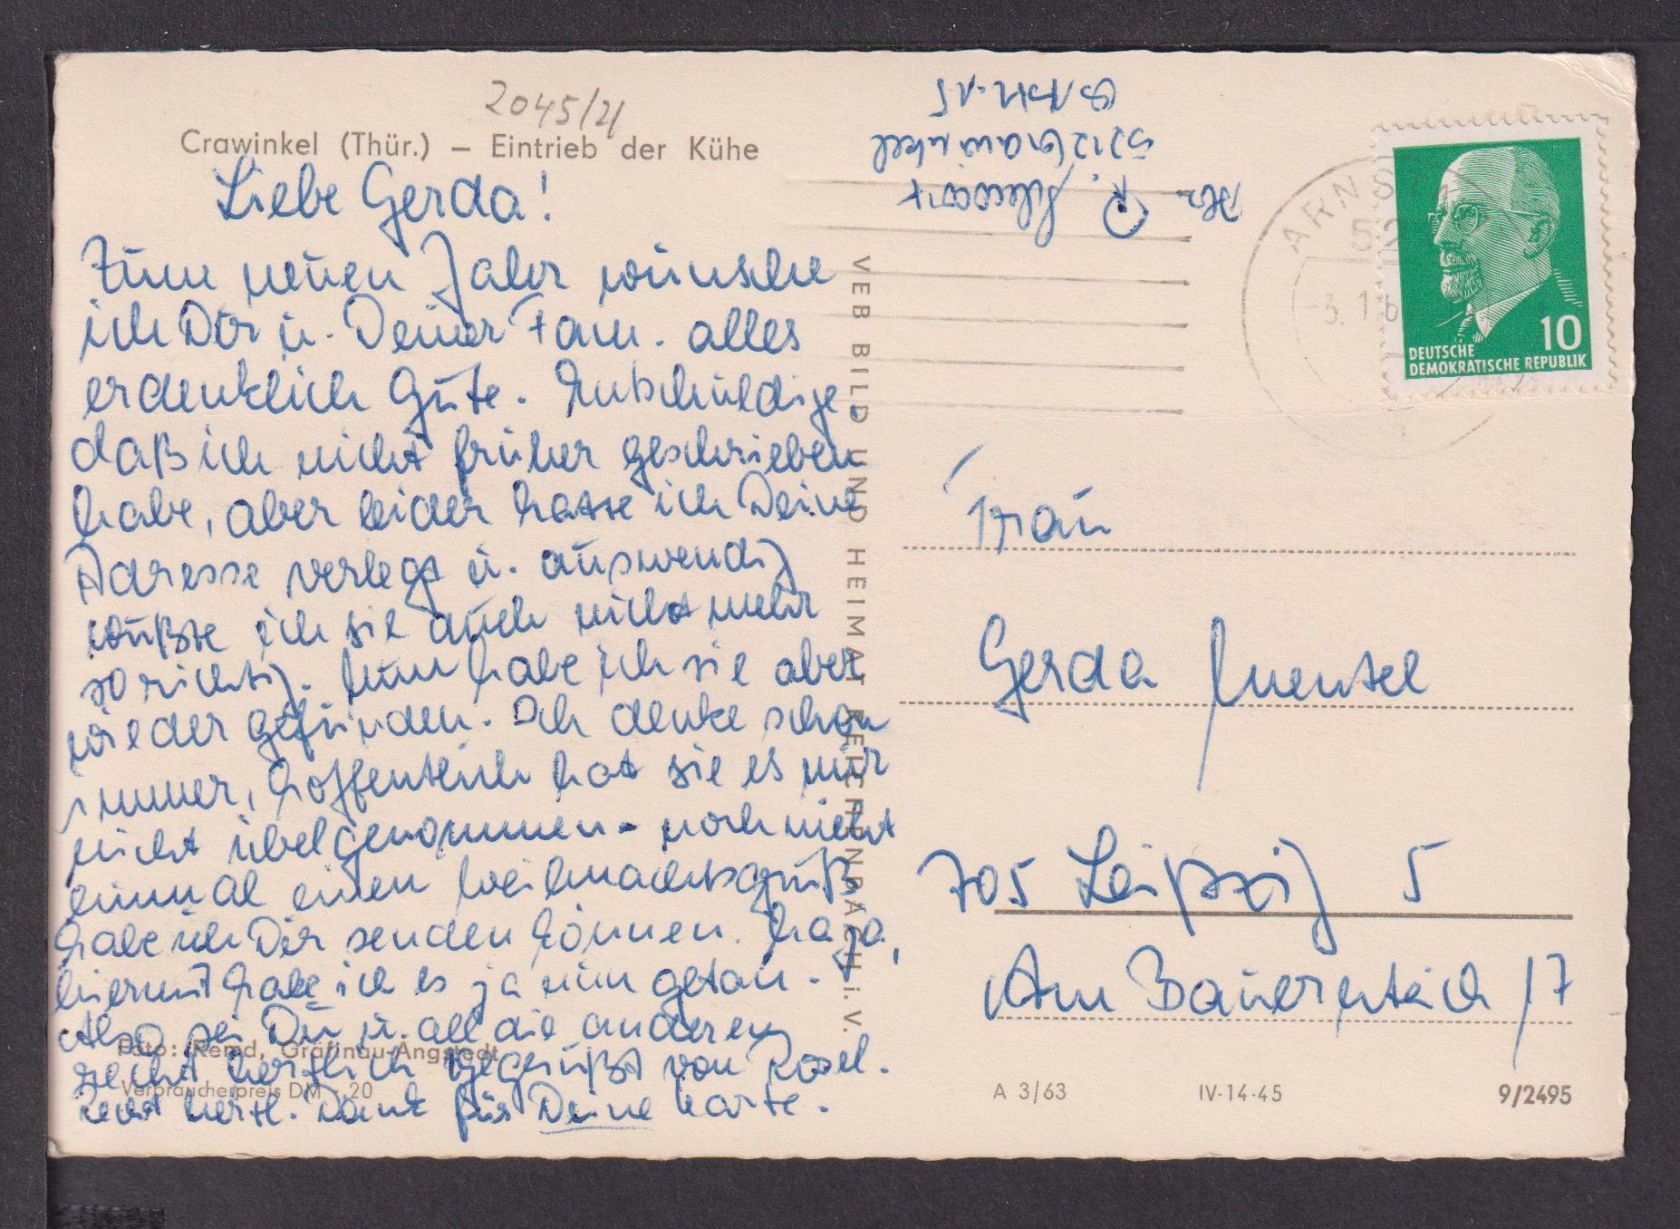 2045/21
Crawinkel (Thür.) — Eintrieb der Kühe
Liebe Gerda!
Zum neuen Jahr wünsche
ich Dir u. Deiner Fam. alles
erdenklich Gute. Entschuldige,
daß ich nicht früher geschrieben
habe, aber leider hatte ich Deine
Adresse verlegt u. auswendig
wußte ich sie auch nicht mehr
so richtig. Nun habe ich sie aber
wieder gefunden. Ich denke schon
immer, hoffentlich hat sie es mir
nicht übelgenommen - noch nicht
einmal einen Weihnachtsgruß
habe ich Dir senden können. Na ja,
hiermit habe ich es ja nun getan.
Also sei Du u. all die anderen
recht herzlich gegrüßt von Rosel.
Recht herzl. Dank für Deine Karte.
Foto: Remd, Gräfinau-Angstedt
Verbraucherpreis DM -,20
VEB BILD UND HEIMAT REICHENBACH i. V.
Abs. R.
5212 Crawinkel
ARNS
52
3. 1. 6
10
DEUTSCHE
DEMOKRATISCHE REPUBLIK
Frau
Gerda
705 Leipzig 5
Am Bauernteich 17
A 3/63
IV-14-45
9/2495